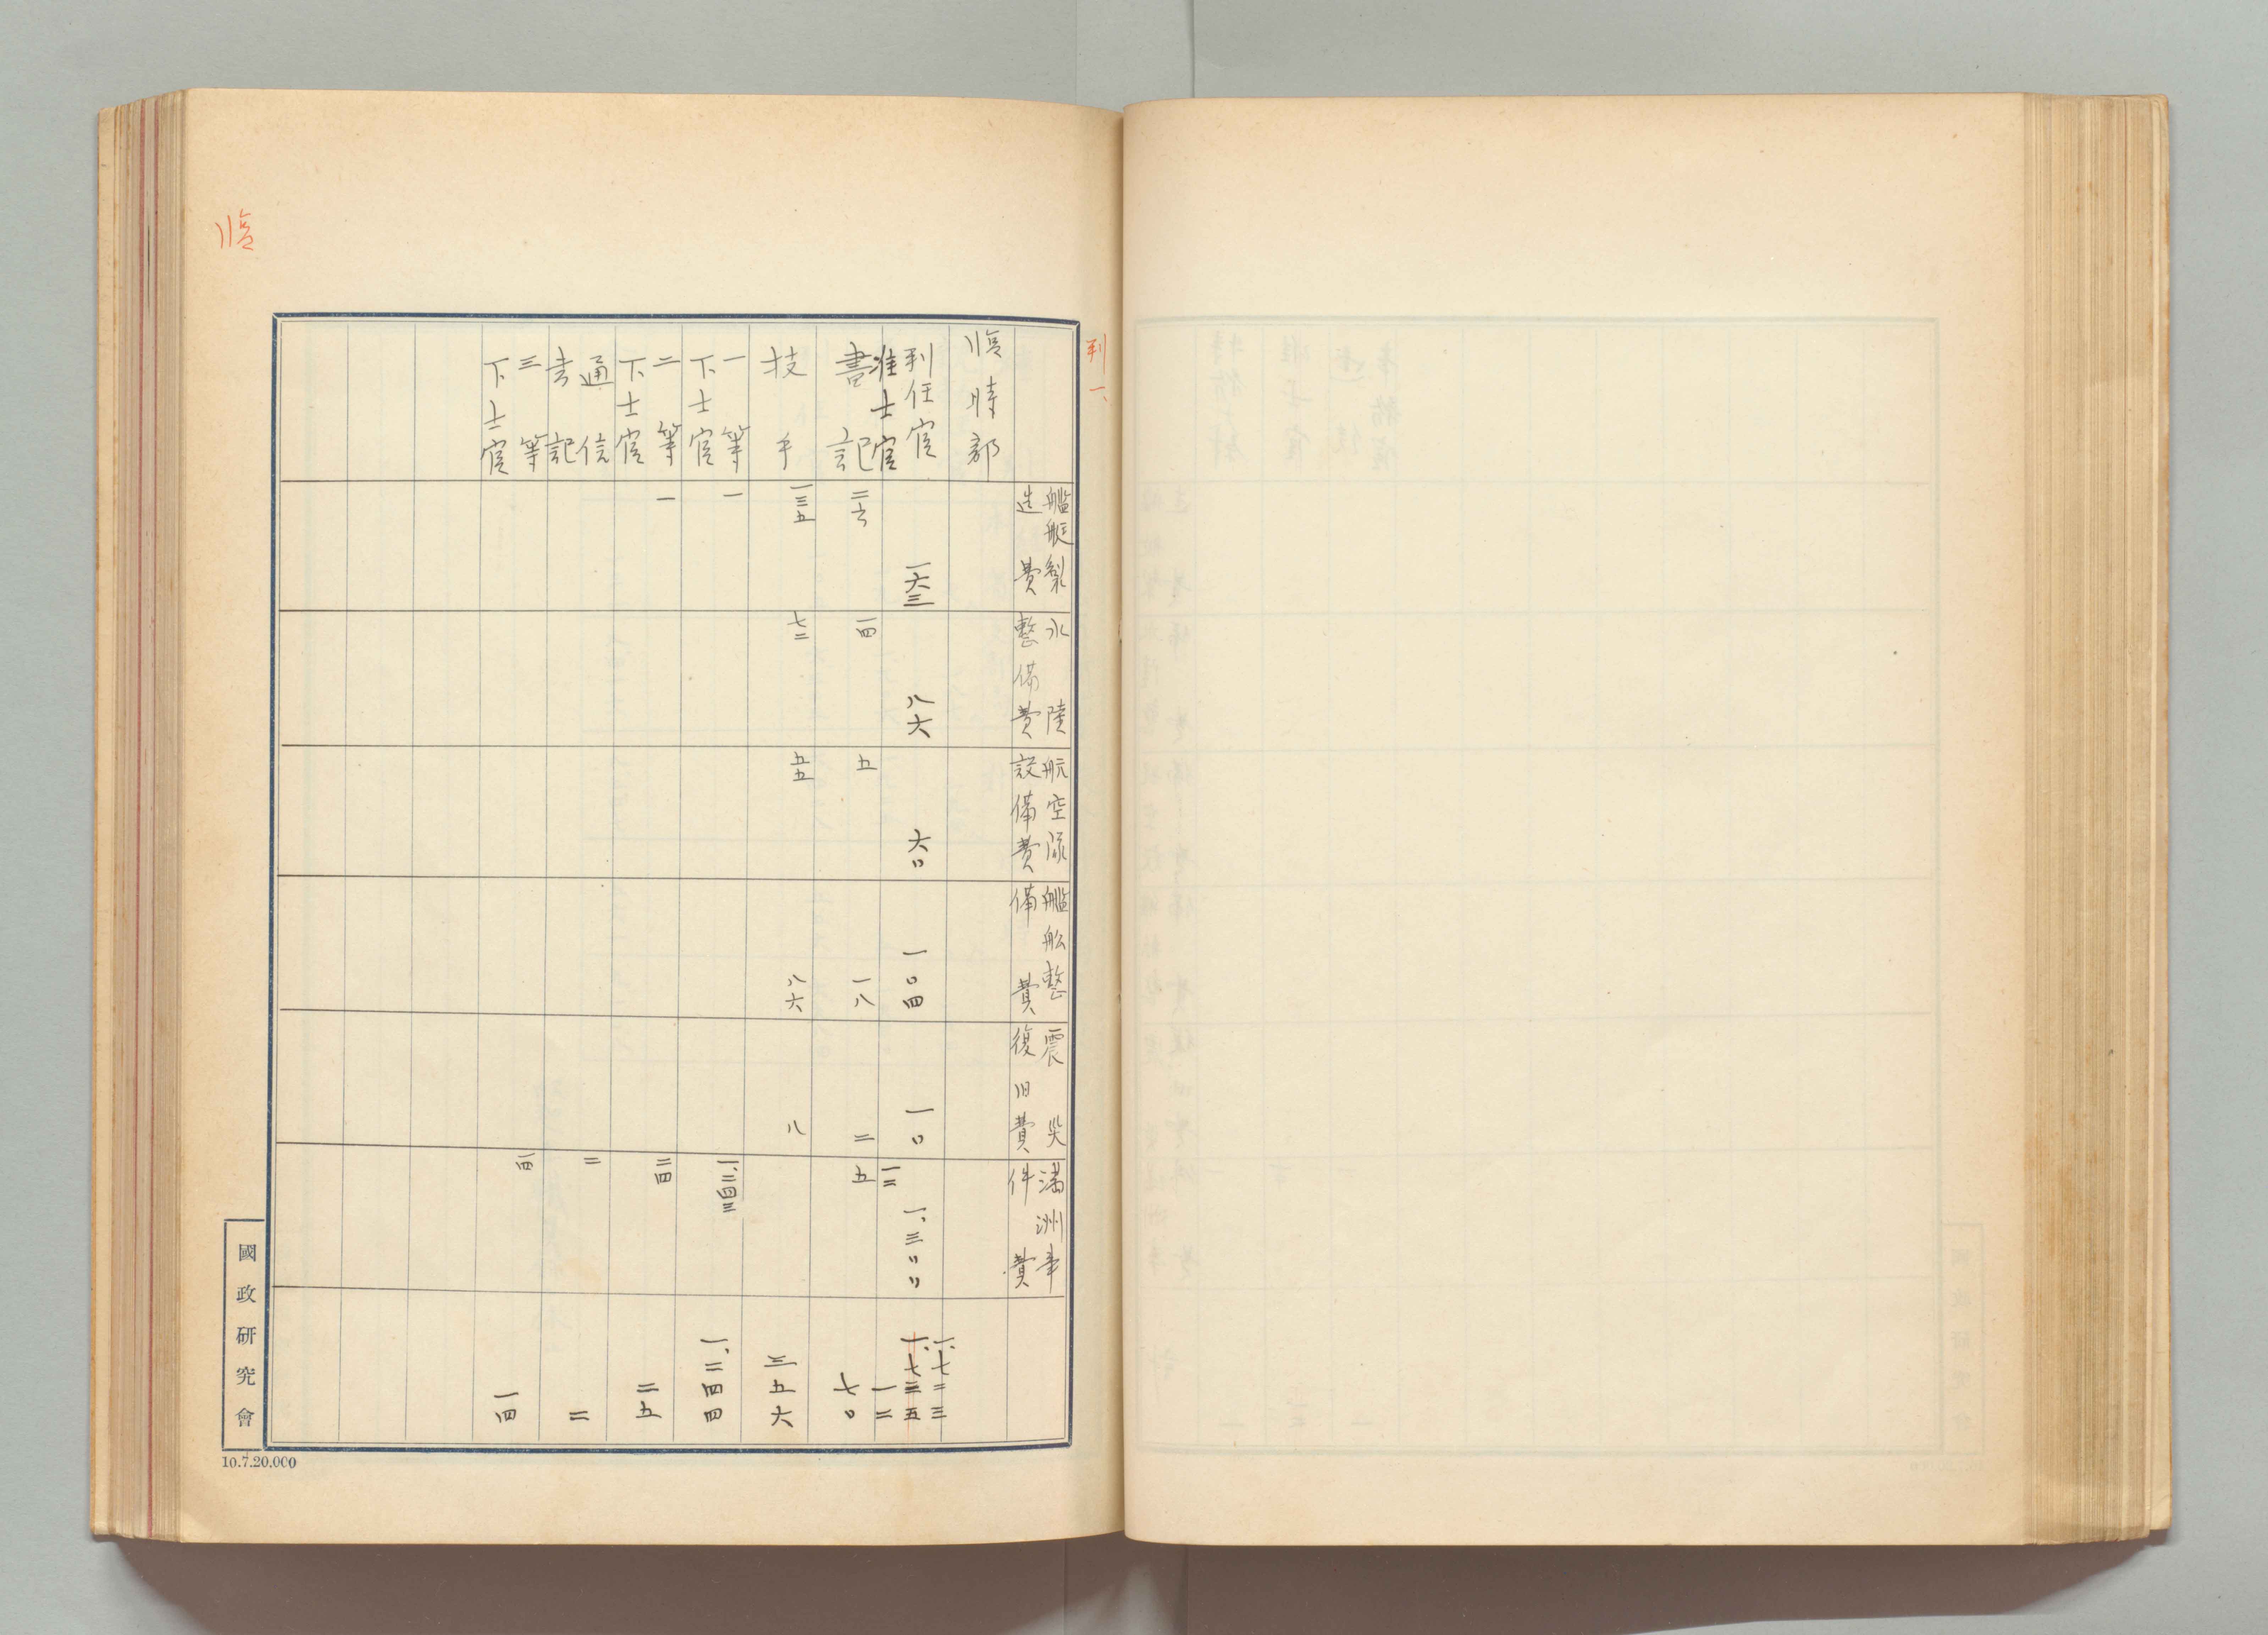 判一、
艦艇製
造費
水陸
整備費
航空隊
設備費
艦船整
備費
震災
復旧費
満洲事
件費
臨時部
判任官 一六三 八六 六〇 一〇四 一〇 一、三〇〇 一、七二三
一、七二五
准士官 一二 一二
書記 二六 一四 五 一八 二 五 七〇
技手 一三五 七二 五五 八六 八 三五六
一等
下士官 一 一、二四三 一、二四四
二等
下士官 一 二四 二五
通信
書記 二 二
三等
下士官 一四 一四
臨
國政研究會
10.7.20.000